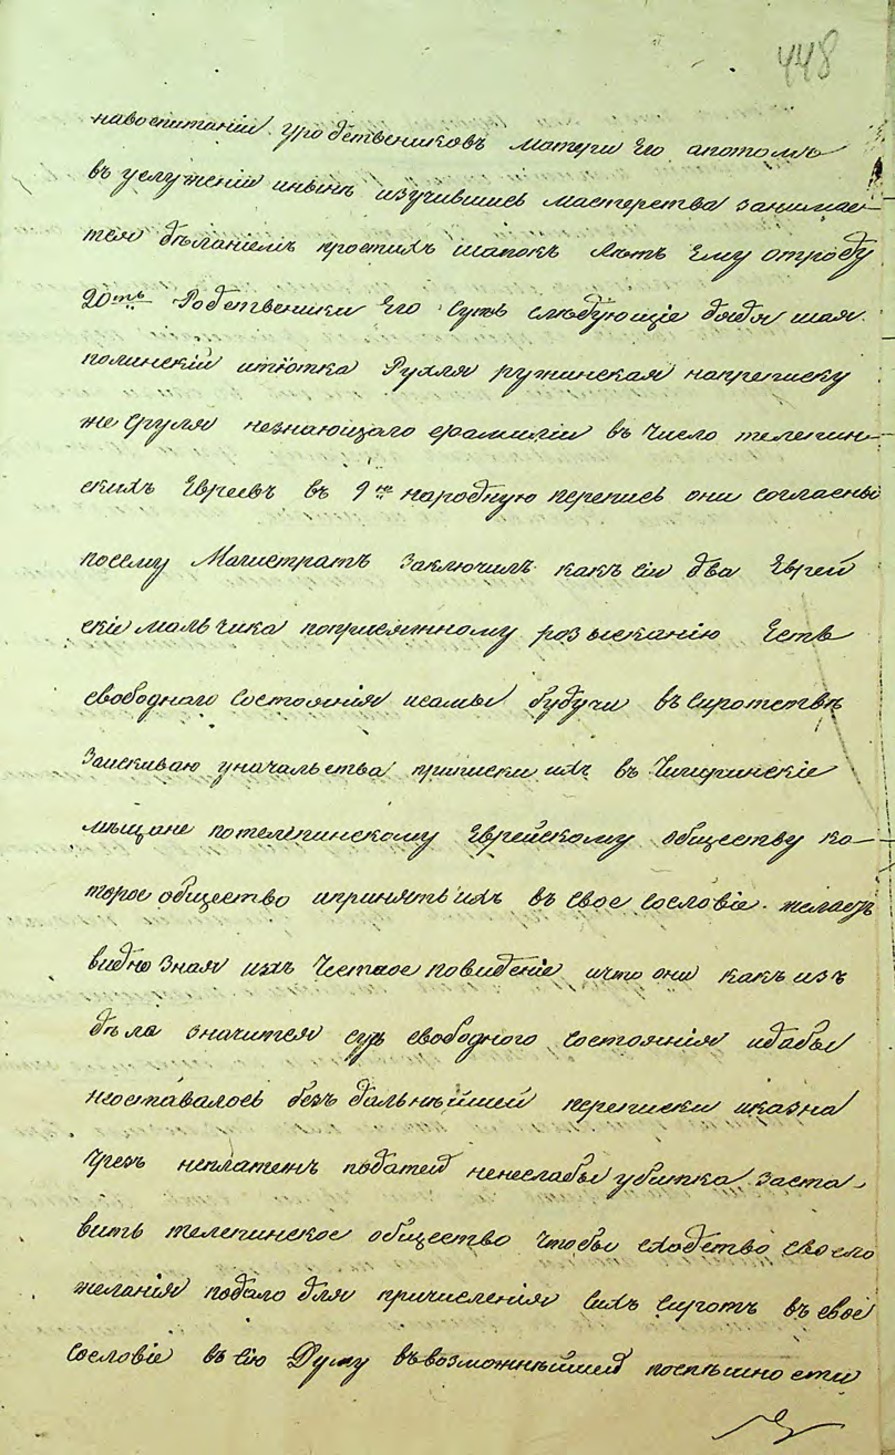 448
навоспитаніи уродствениковъ матери Его апотомъ
въ услуженіи инынѣ изучившись мастерства занимае-
тся дѣланіемъ простихъ шапокъ лѣтъ Ему отроду
20ть Родственики Его суть слѣдующіе дядя шая
полинскій итіотка Рухля ружинская наприписку
же Сруля незнающаго фамиліи въ число телепин-
скихъ Евреевъ въ 9ю народную перепись они согласны
посему Магистратъ Заключилъ какъ сіи два Еврей
скіе мальчика поприсяжному розысканію Есть
свободнаго состоянія исамы будучи въ сиротствѣ
Заискиваю уначальства приписки ихъ въ Чигиринскіе
мѣщане потелепинскому Еврейскому обществу ко-
торое общество ипринять ихъ въ свое сословіе желаетъ
видно Зная ихъ Честное повидение ичто они какъ изъ
дѣла значится суть свободного состоянія идабы
неоставалось безъ дальнѣйшей переписки иказна
чрезъ неплатежъ податей ненеслабы убытка заста-
вить телепинское общество чтобы сходство своего
желанія подало для причисленія сихъ сиротъ въ свое
сословіе въ сію Думу въвозможнѣйшей поспѣшности